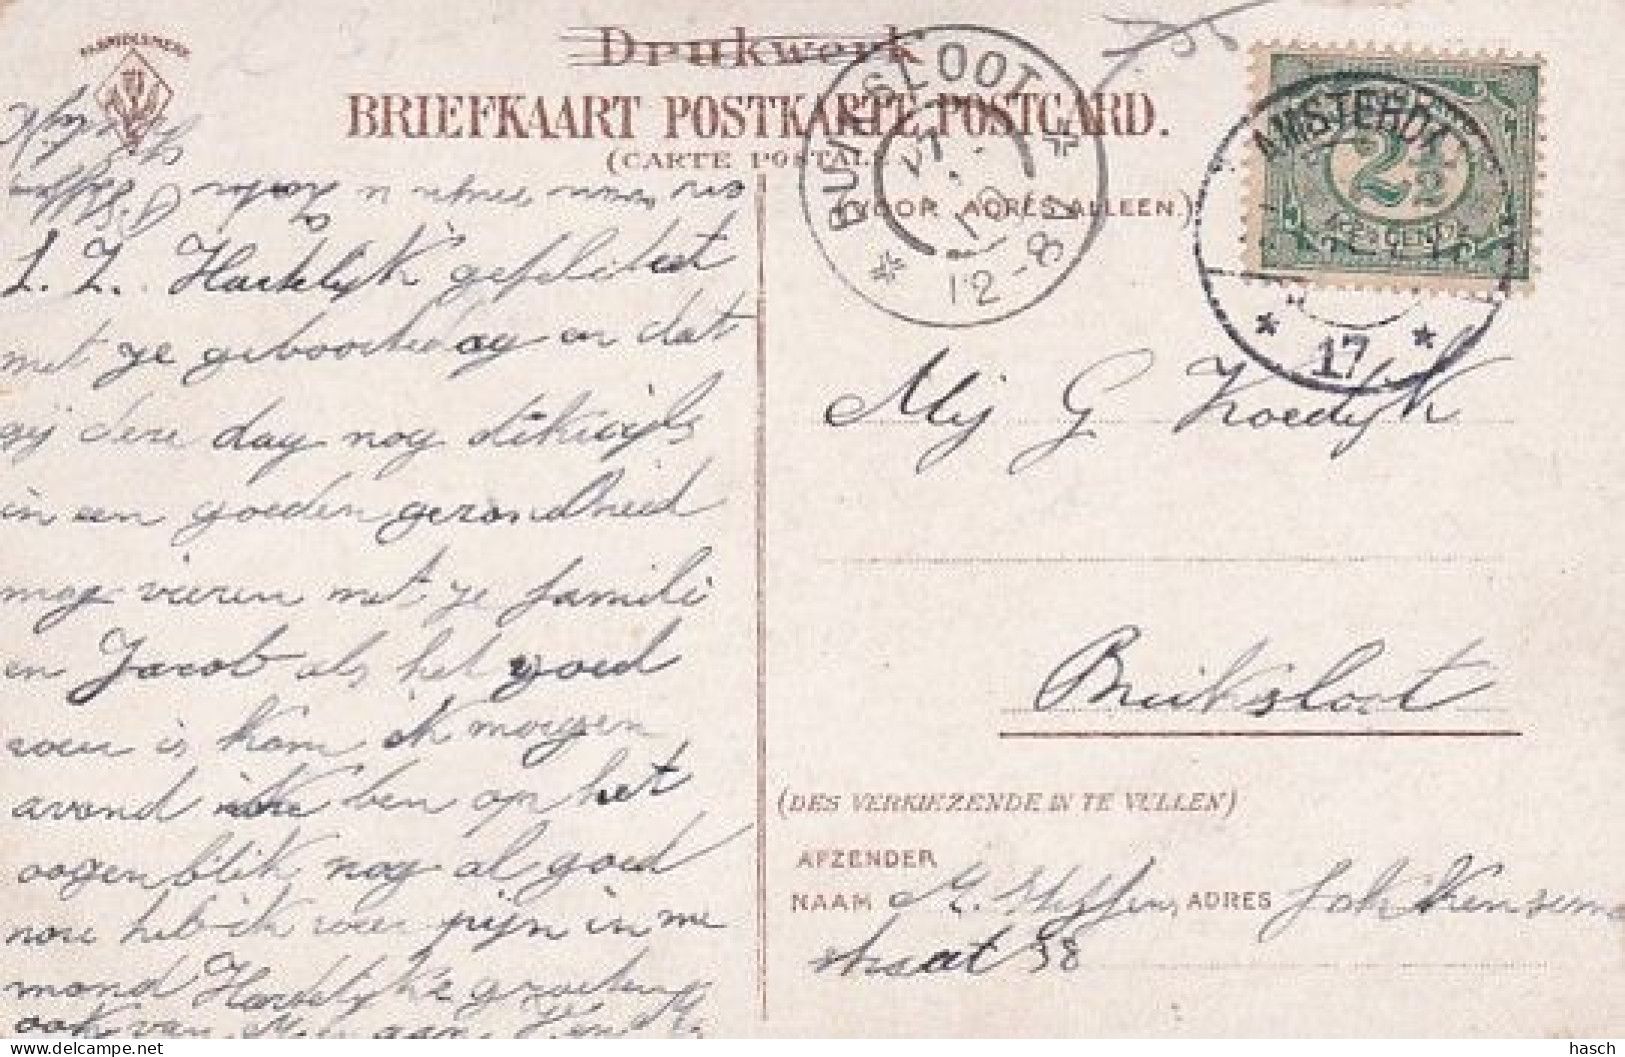 HANDELSMERK
Drukwerk
BRIEFKAART POSTKARTE POSTCARD.
(CARTE POSTALE
(VOOR ADRES ALLEEN.)
BUIKSLOOT
12-8
AMSTERDA
17
2½
CENT
L. Z. Hartelijk gefeliciteet
met je geboortedag en dat
gij deze dag nog dikwijls
in een goeden gezondheid
mag vieren met je famili
en Jacob als het goed
weer is kom ik morgen
avond ben op het
oogenblik nog al goed
heb ik weer pijn in me
mond Hartelijke groeten
ook van
Mej G Koedijk
Buiksloot
(DES VERKIEZENDE IN TE VULLEN)
AFZENDER
NAAM ADRES
straat 58
hasch